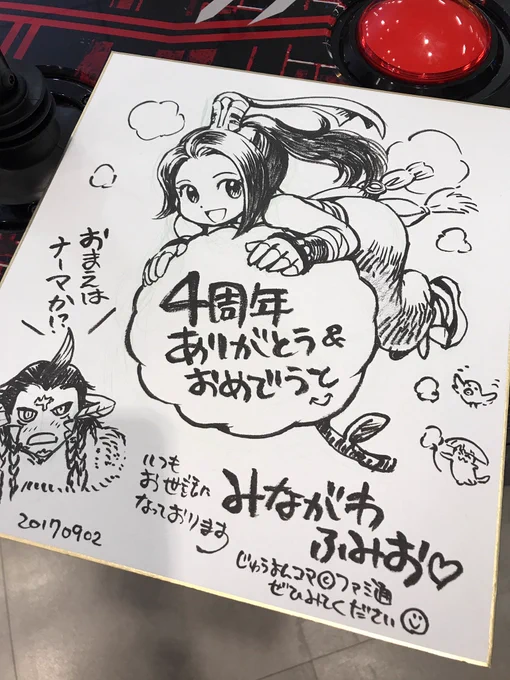 おまえは
ナーマか!?
4周年
ありがとう&
おめでうと
いつも
お世話に
なっております
みながわ
ふみお♡
20170902
じゅうまんコマ©ファミ通
ぜひみてください☺